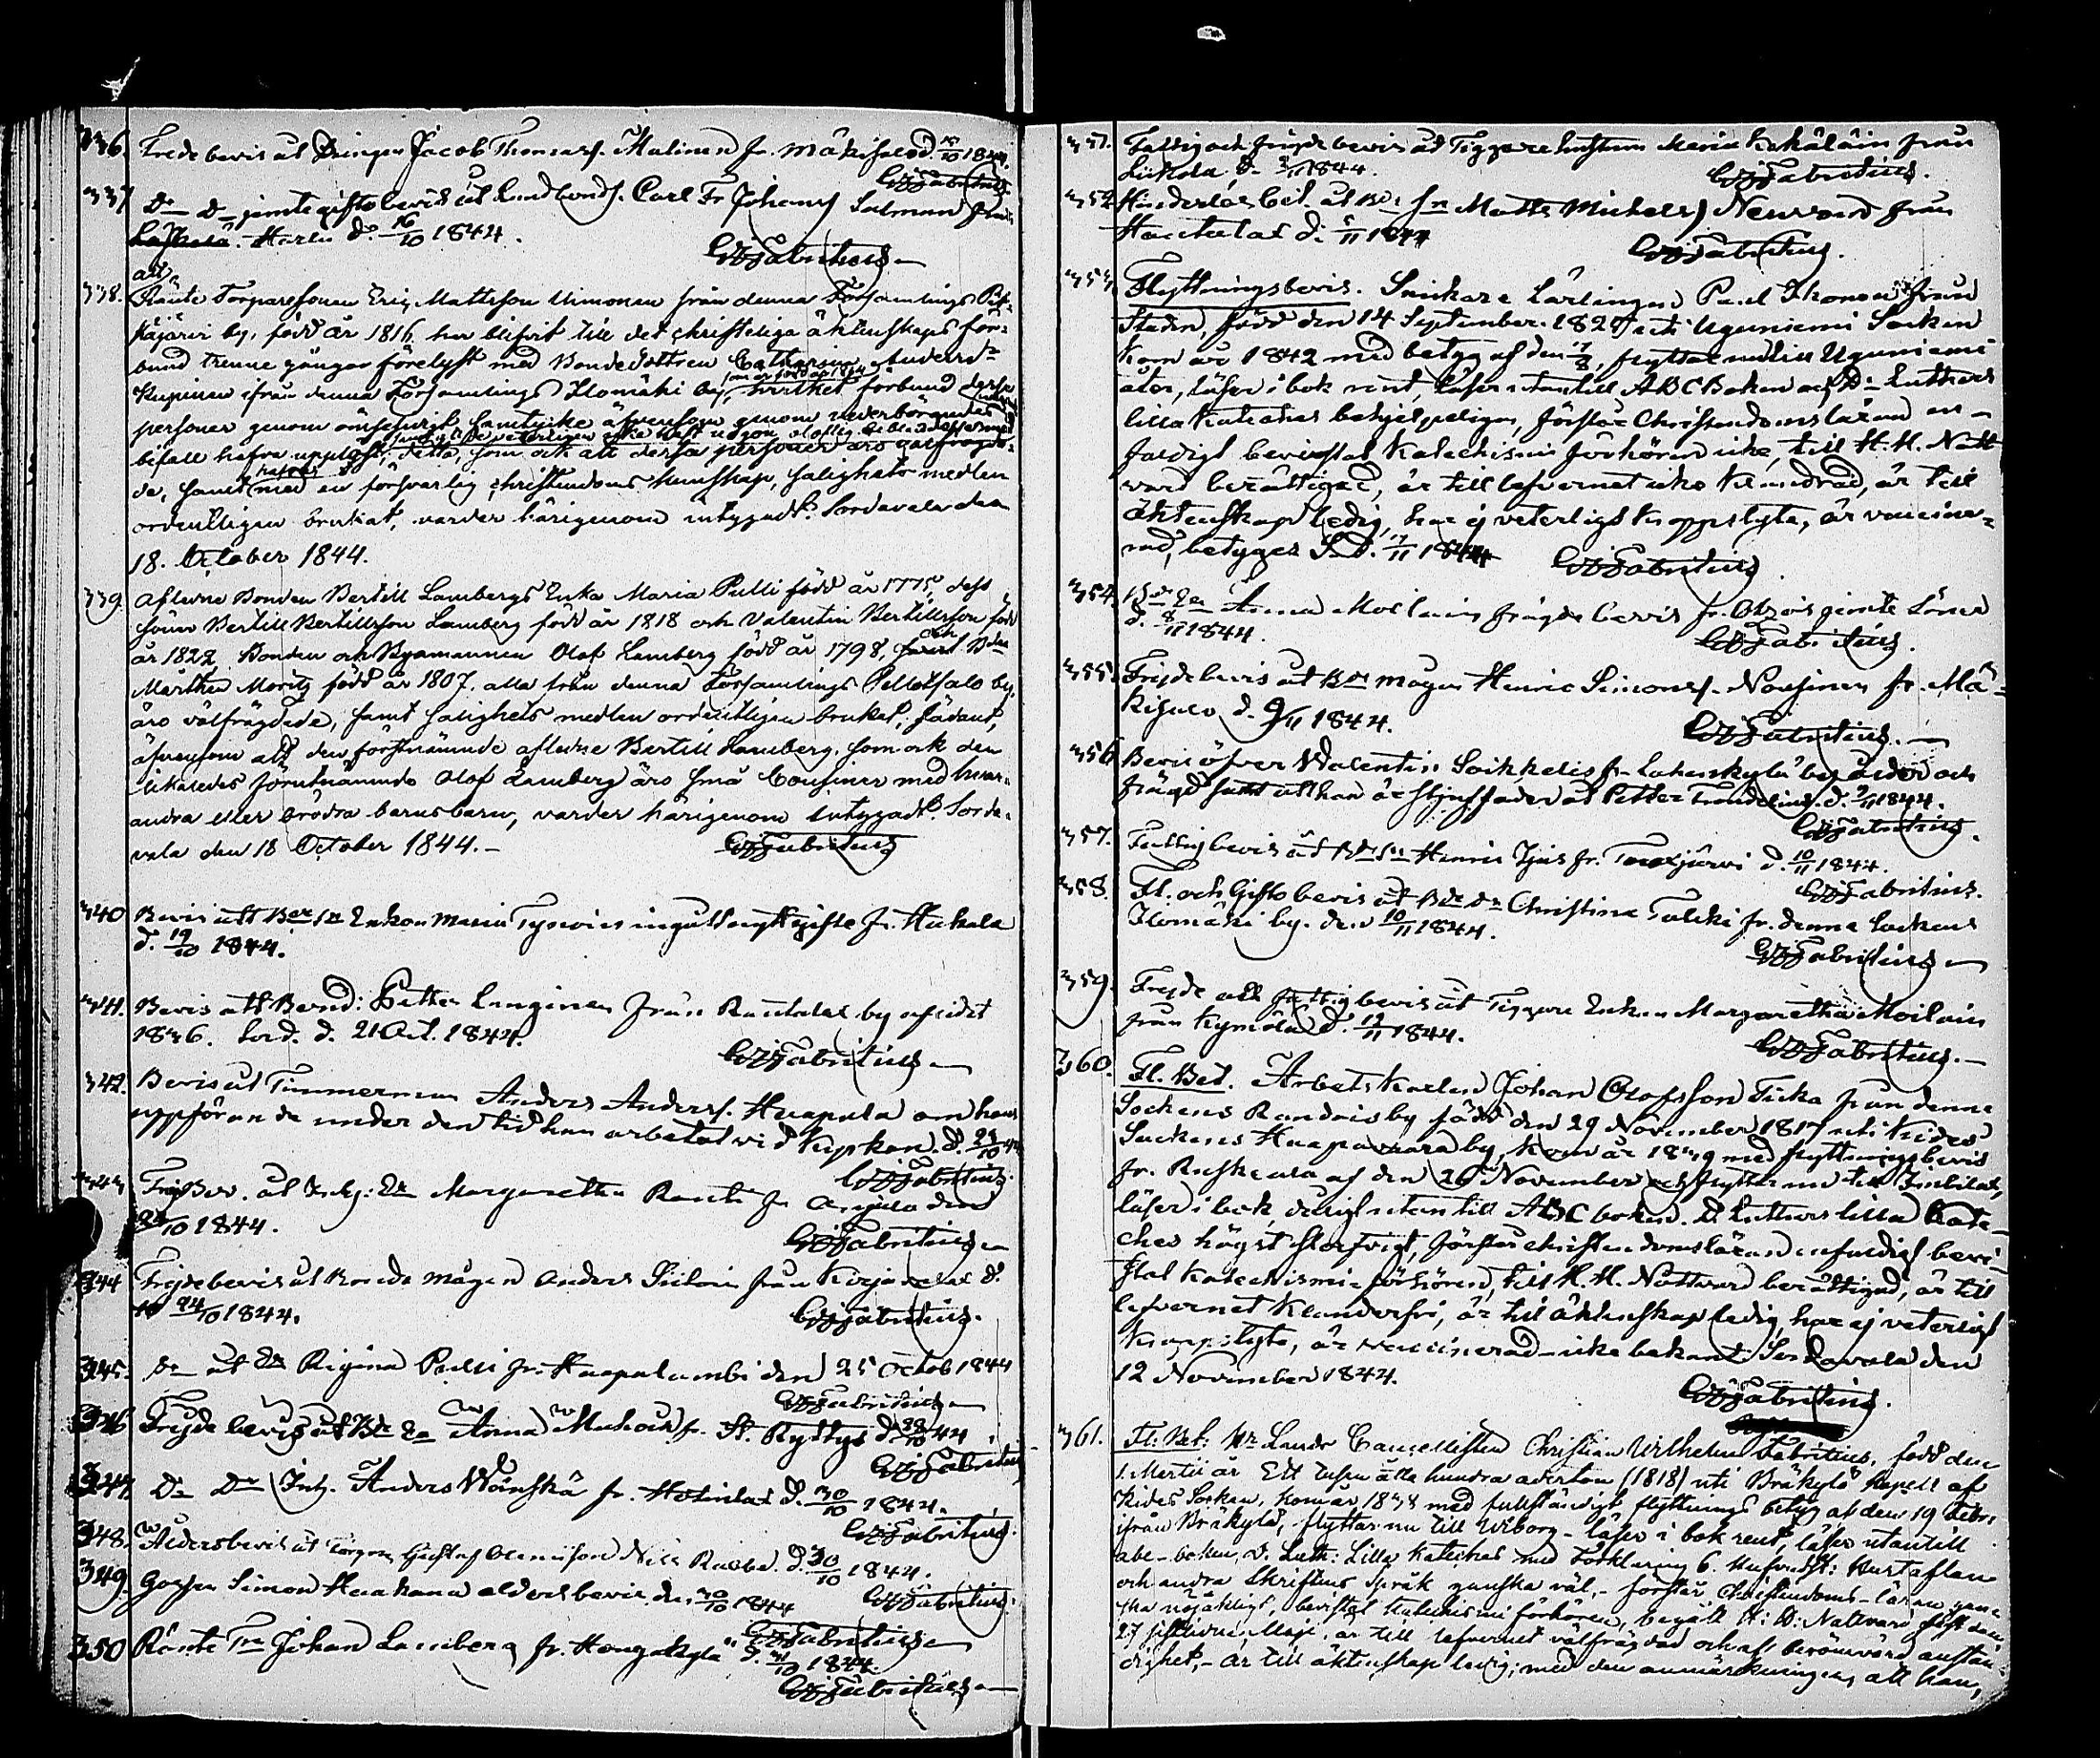 336. Frede bevis åt Drengen Jacob Thomass. Malinen fr. Mäkisalo d. 15/10 1844.
GWJFabritius
337 Do Do jemte gifto bevis åt Landbonds. Carl Fr. Johans Salman från
Harlu d. 16/10 1844.
GWJFabritius
att
338. Ränte Torparesonen Eric Mattsson Uimonen från denna Församlings
järvi by, född år 1816, har blifvit till det christeliga äktenskaps för-
bund trenne gångor förelyst med Bondedottren Catharina Anders
som är född år 1824
Kupinen ifrån denna Församlings Ilomäki by, hvilket förbund dessa
personer genom ömsesidigt samtycke äfvensom genom vederbörandes
bifall hafva upplöst; detta, som ock att dessa personer äro välfrägda-
hafva
de, samt med en försvarlig christendoms kunskap, salighets medlen
ordentligen brukat, varder härigenom intygadt. Sordavala den
18. October 1844.
339. Aflidne Bonden Bertill Lambergs Enka Maria Pulli född år 1775, dess
söner Bertill Bertillsson Lamberg född år 1818 och Valentin Bertillsson född
år 1822, Bonden och Byamannen Olof Lamberg född år 1798, och Bden
Mårthen Moritz född år 1807. alla från denna Församlings Pellotsalo by,
äro välfrägdade, samt salighets medlen ordentligen brukat, sådant,
äfvensom att den förstnämnde aflidne Bertill Lamberg, som ock den
likaledes förutnämnde Olof Lamberg äro små Cousiner med hvar-
andra eller brödra barnsbarn, varder härigenom intygadt. Sorda-
vala den 18 October 1844.-
GWJFabritius
340 Bevis att Enkan Maria Tyrväin ingått nytt gifte fr. Hukala
d. 19/10 1844.
341. Bevis att Bond: Petter Langinen från Rautalax by aflidit
1836. Sord. d. 21 Oct. 1844.
GWJFabritius
342. Bevis åt Timmerman Anders Anderss. Haapala om hans
uppförande under den tid han arbetat vid Kyrkan. d. 23/10 44
GWJFabritius
343 FrejdBev. åt Inhy: En Margaretha Rante fr Anjala den
24/10 1844.
GWJFabritius
344 Frejdebevis åt Bonde mågen Anders Siitoin från Kirjavalax d.
24/10 1844.
GWJFabritius.
345. Do åt En Regina Pulli fr. Haapalambi den 25 Octob 1844
GWJFabritius
346 Frejde bevis åt Bde En Anna Muhoin fr. St. Rystys d. 29/10 44
GWJFabritius
347. Do Do Inh. Anders Wänskä fr. Hotinlax d. 30/10 1844.
GWJFabritius.
348. Åldersbevis åt Gustaf Nils d. 30/10 1844.
GWJFabritius.
349. Gossen Simon Haakana aldersbevis d. 30/10 1844
GWJFabritius
350 Ränte Tn Johan Lamberg fr. Hongakylä d. 31/10 1844.
GWJFabritius
351. Fattig och frejde bevis åt Tiggare hustrun Maria Kokäläin från
d. 2/11 1844.
GWJFabritius.
352 Hinderlös bet. åt Bde sn Matts Michelss Neuvoin från
d. 5/11 1844
GWJFabritius.
353. Flyttningsbevis. Snickare Lärlingen Paul Ikonen från
Staden, född den 14 September 1827 uti Uguniemi Socken
kom år 1842 med betyg af den flyttar nu till Uguniemi
åter, läser i bok rent, läser utantill ABC Boken och Dr Luthers
lilla Kateches behjelpeligen, förstår Christendomsläran en-
faldigt bevistat Katechismi förhören icke, till H. H. Natt-
vard berättigad, är till lefvernet icke klandrad, är till
äktenskap ledig, har ej veterligt kroppslyte, är vaccine-
rad, betygas Sd. 11 1844
GWJFabritius
354. Bde En Anna Moilain frägde bevis fr. Otsois jemte Söner
d. 8/11 1844.
GWJFabritius.
355. Frejdebevis åt Bde mågen Henric Simonss. Nousinen fr. Mä-
kisalo d. 9/11 1844.
GWJFabritius.
356. Bevis öfver Walentin Soikkelis fr. Lahenkylä by ålder och
frägd samt att han är stjuffader åt Petter Trondelius. d. 9/11 1844.
GWJFabritius.
357. Fattigbevis åt Bde sn Henric Ijäs fr. Tuoxjärvi d. 10/11 1844.
GWJFabritius.
358. Fl. och Gifto bevis åt Bde dn Christina Tulski fr. denna Sockens
Ilomäki by. den 10/11 1844.
GWJFabritius
359. Frejde och fattigbevis åt Tiggare Enkan Margaretha Moilain
från Kymölä d. 12/11 1844.
GWJFabritius.
360. Fl. Bet. Arbetskarlen Johan Olofsson Ticka från denna
Sockens by född den 29 November 1817 uti Kides
Sockens Haapavaara by, kom år 1839 med flyttningsbevis
fr. Ruskeala af den 26 November och flyttar nu till Imbilax,
läser i bok, dåligt utantill ABC boken. D. Luthers lilla Kate-
ches högst slarfvigt, förstår christendomsläran enfaldigt bevi-
stat Katechismi förhören, till H. H. Nattvard berättigad, är till
lefvernet klanderfri, är till äktenskap ledig, har ej veterligt
kroppslyte, är vaccinerad icke bekant. Sordavala den
12 November 1844.
GWJFabritius.
361. Fl: Bet: Hr Lands Cancellisten Christian Wilhelm Fabritius, född den
1 Martii år Ett tusen åtta hundra aderton (1818) uti Bräkylä Kapell af
Kides Socken, kom år 1838 med fullständigt flyttnings betyg af den 19 Febr.
ifrån Bräkylä, flyttar nu till Wiborg - läser i bok rent, läser utantill
abc-boken, D. Luth: Lilla Kateches med Förklaring
och andra Skriftens Språk ganska väl, - förstår Christendoms-läran gan-
ska nöjaktigt, bevistat Katechismi förhören, begått H: H: Nattvard sist den
27 sistledne Maji, är till lefvernet välfrägdad och af berömvärd anstän-
dighet, - är till äktenskap ledig; med den anmärkningen, att han,